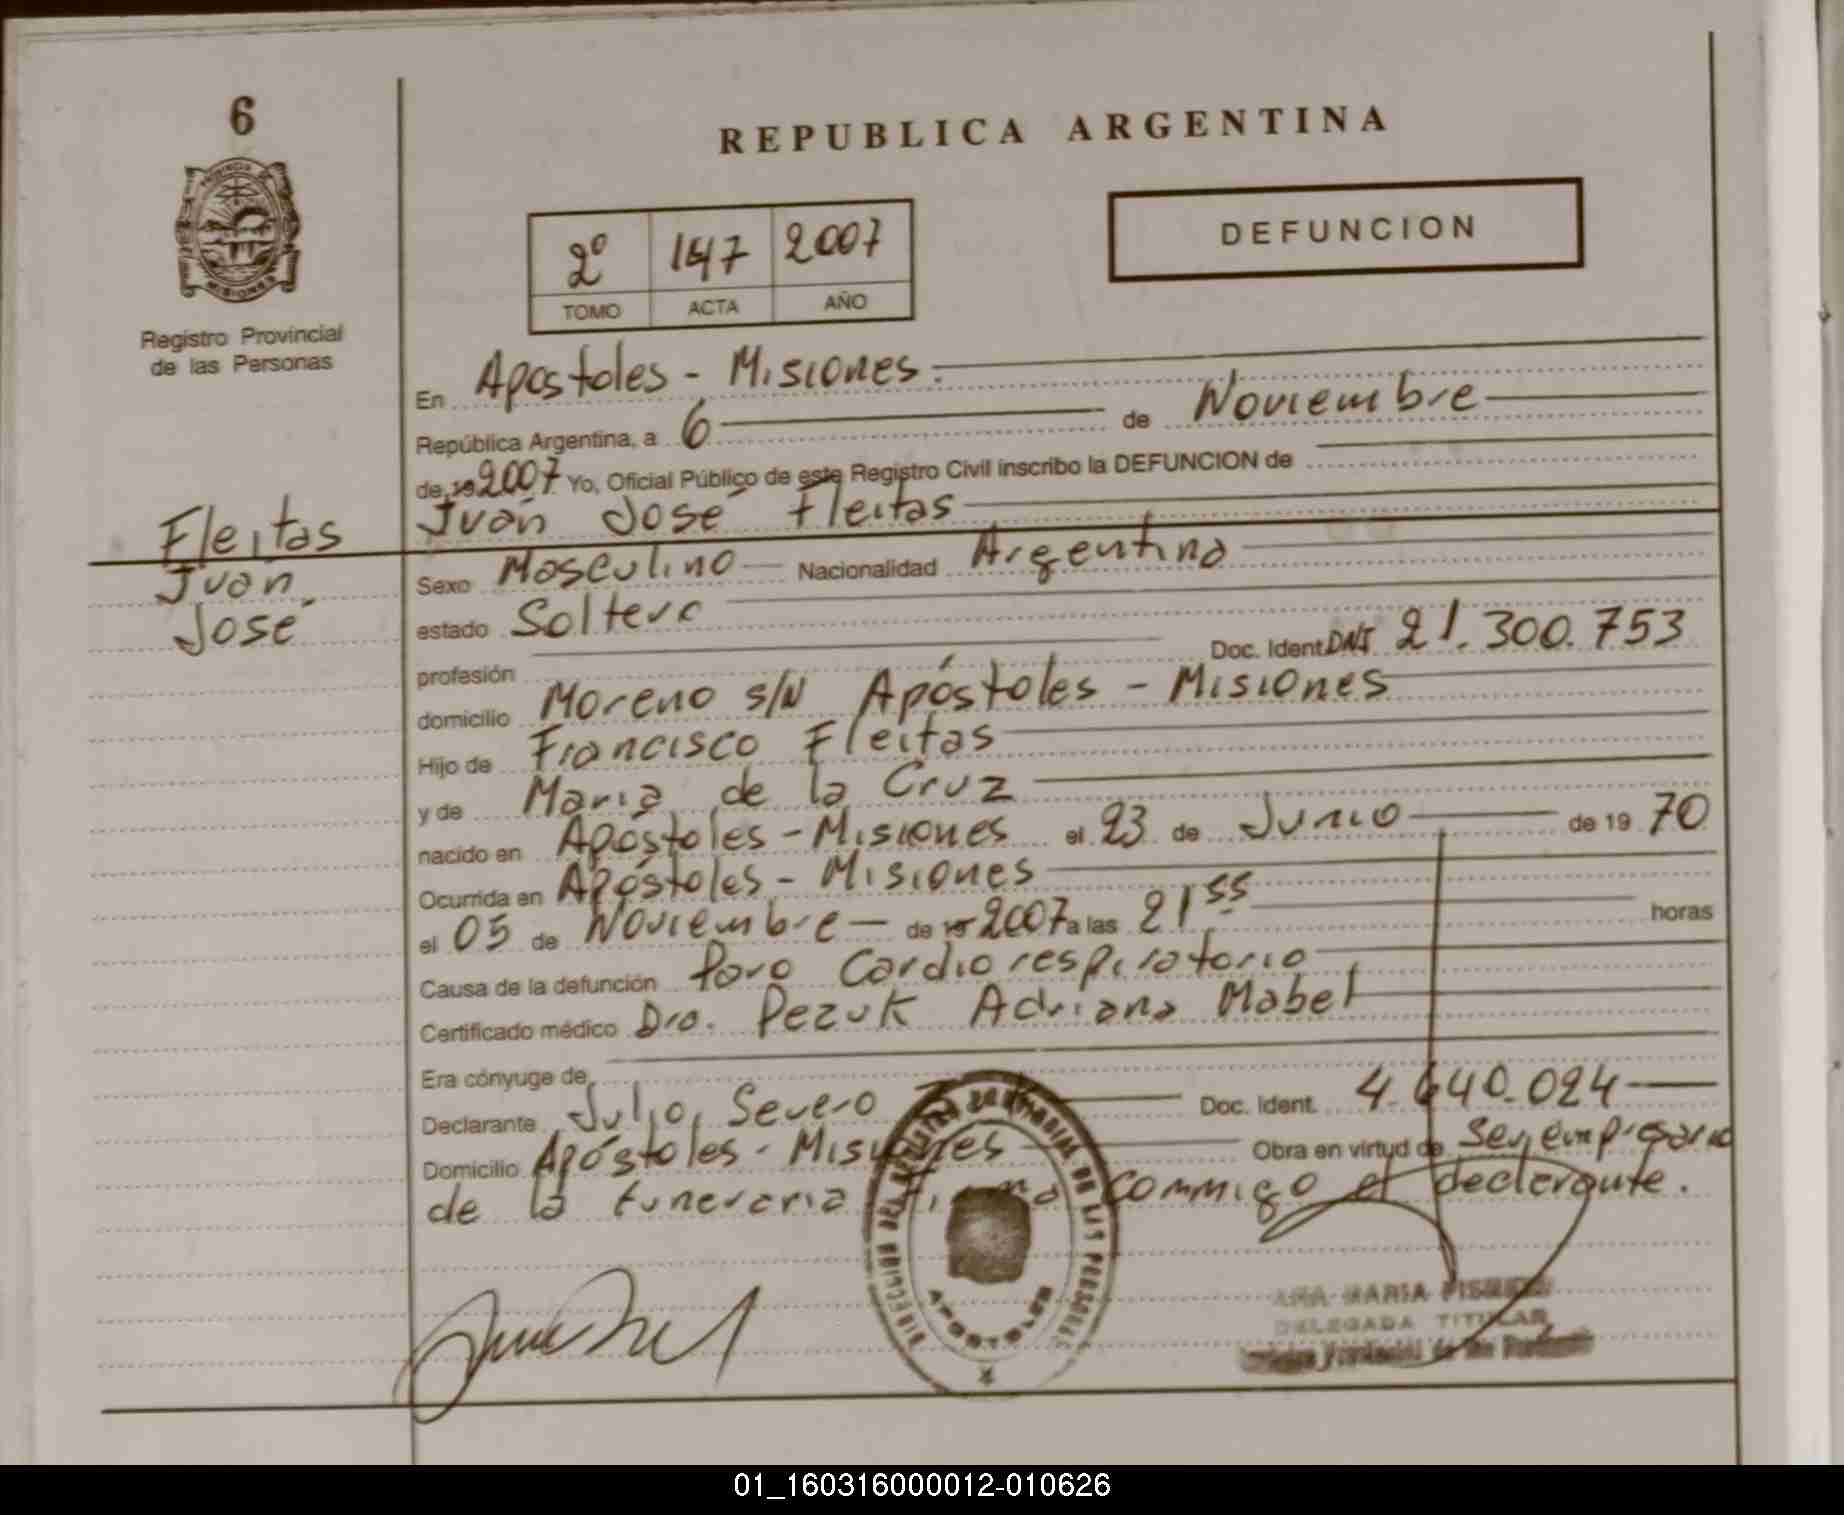 6
PROVINCIA DE
MISIONES
Registro Provincial
de las Personas
REPUBLICA ARGENTINA
2º 147 2007
TOMO ACTA AÑO
DEFUNCION
En Apostoles - Misiones.
República Argentina, a 6 de Noviembre
de 19 2007 Yo, Oficial Público de este Registro Civil inscribo la DEFUNCION de
Juan José Fleitas
Fleitas
Juan
José
Sexo Masculino Nacionalidad Argentina
estado Soltero
profesión Doc. Ident. DNI 21.300.753
domicilio Moreno s/N Apóstoles - Misiones
Hijo de Francisco Fleitas
y de Maria de la Cruz
nacido en Apostoles - Misiones el 23 de Junio de 19 70
Ocurrida en Apóstoles - Misiones
el 05 de Noviembre de 19 2007 a las 21 55 horas
Causa de la defunción Paro Cardiorespiratorio
Certificado médico Dra. Pezuk Adriana Mabel
Era cónyuge de
Declarante Julio, Severo Doc. Ident. 4.640.024
Domicilio Apóstoles - Misiones Obra en virtud de Ser, empresario
de la funeraria Firma commigo el declarante.
DIRECCION DEL REGISTRO PROVINCIAL DE LAS PERSONAS
APOSTOLES
ANA MARIA
DELEGADA TITULAR
Registro Provincial de las Personas
01_160316000012-010626